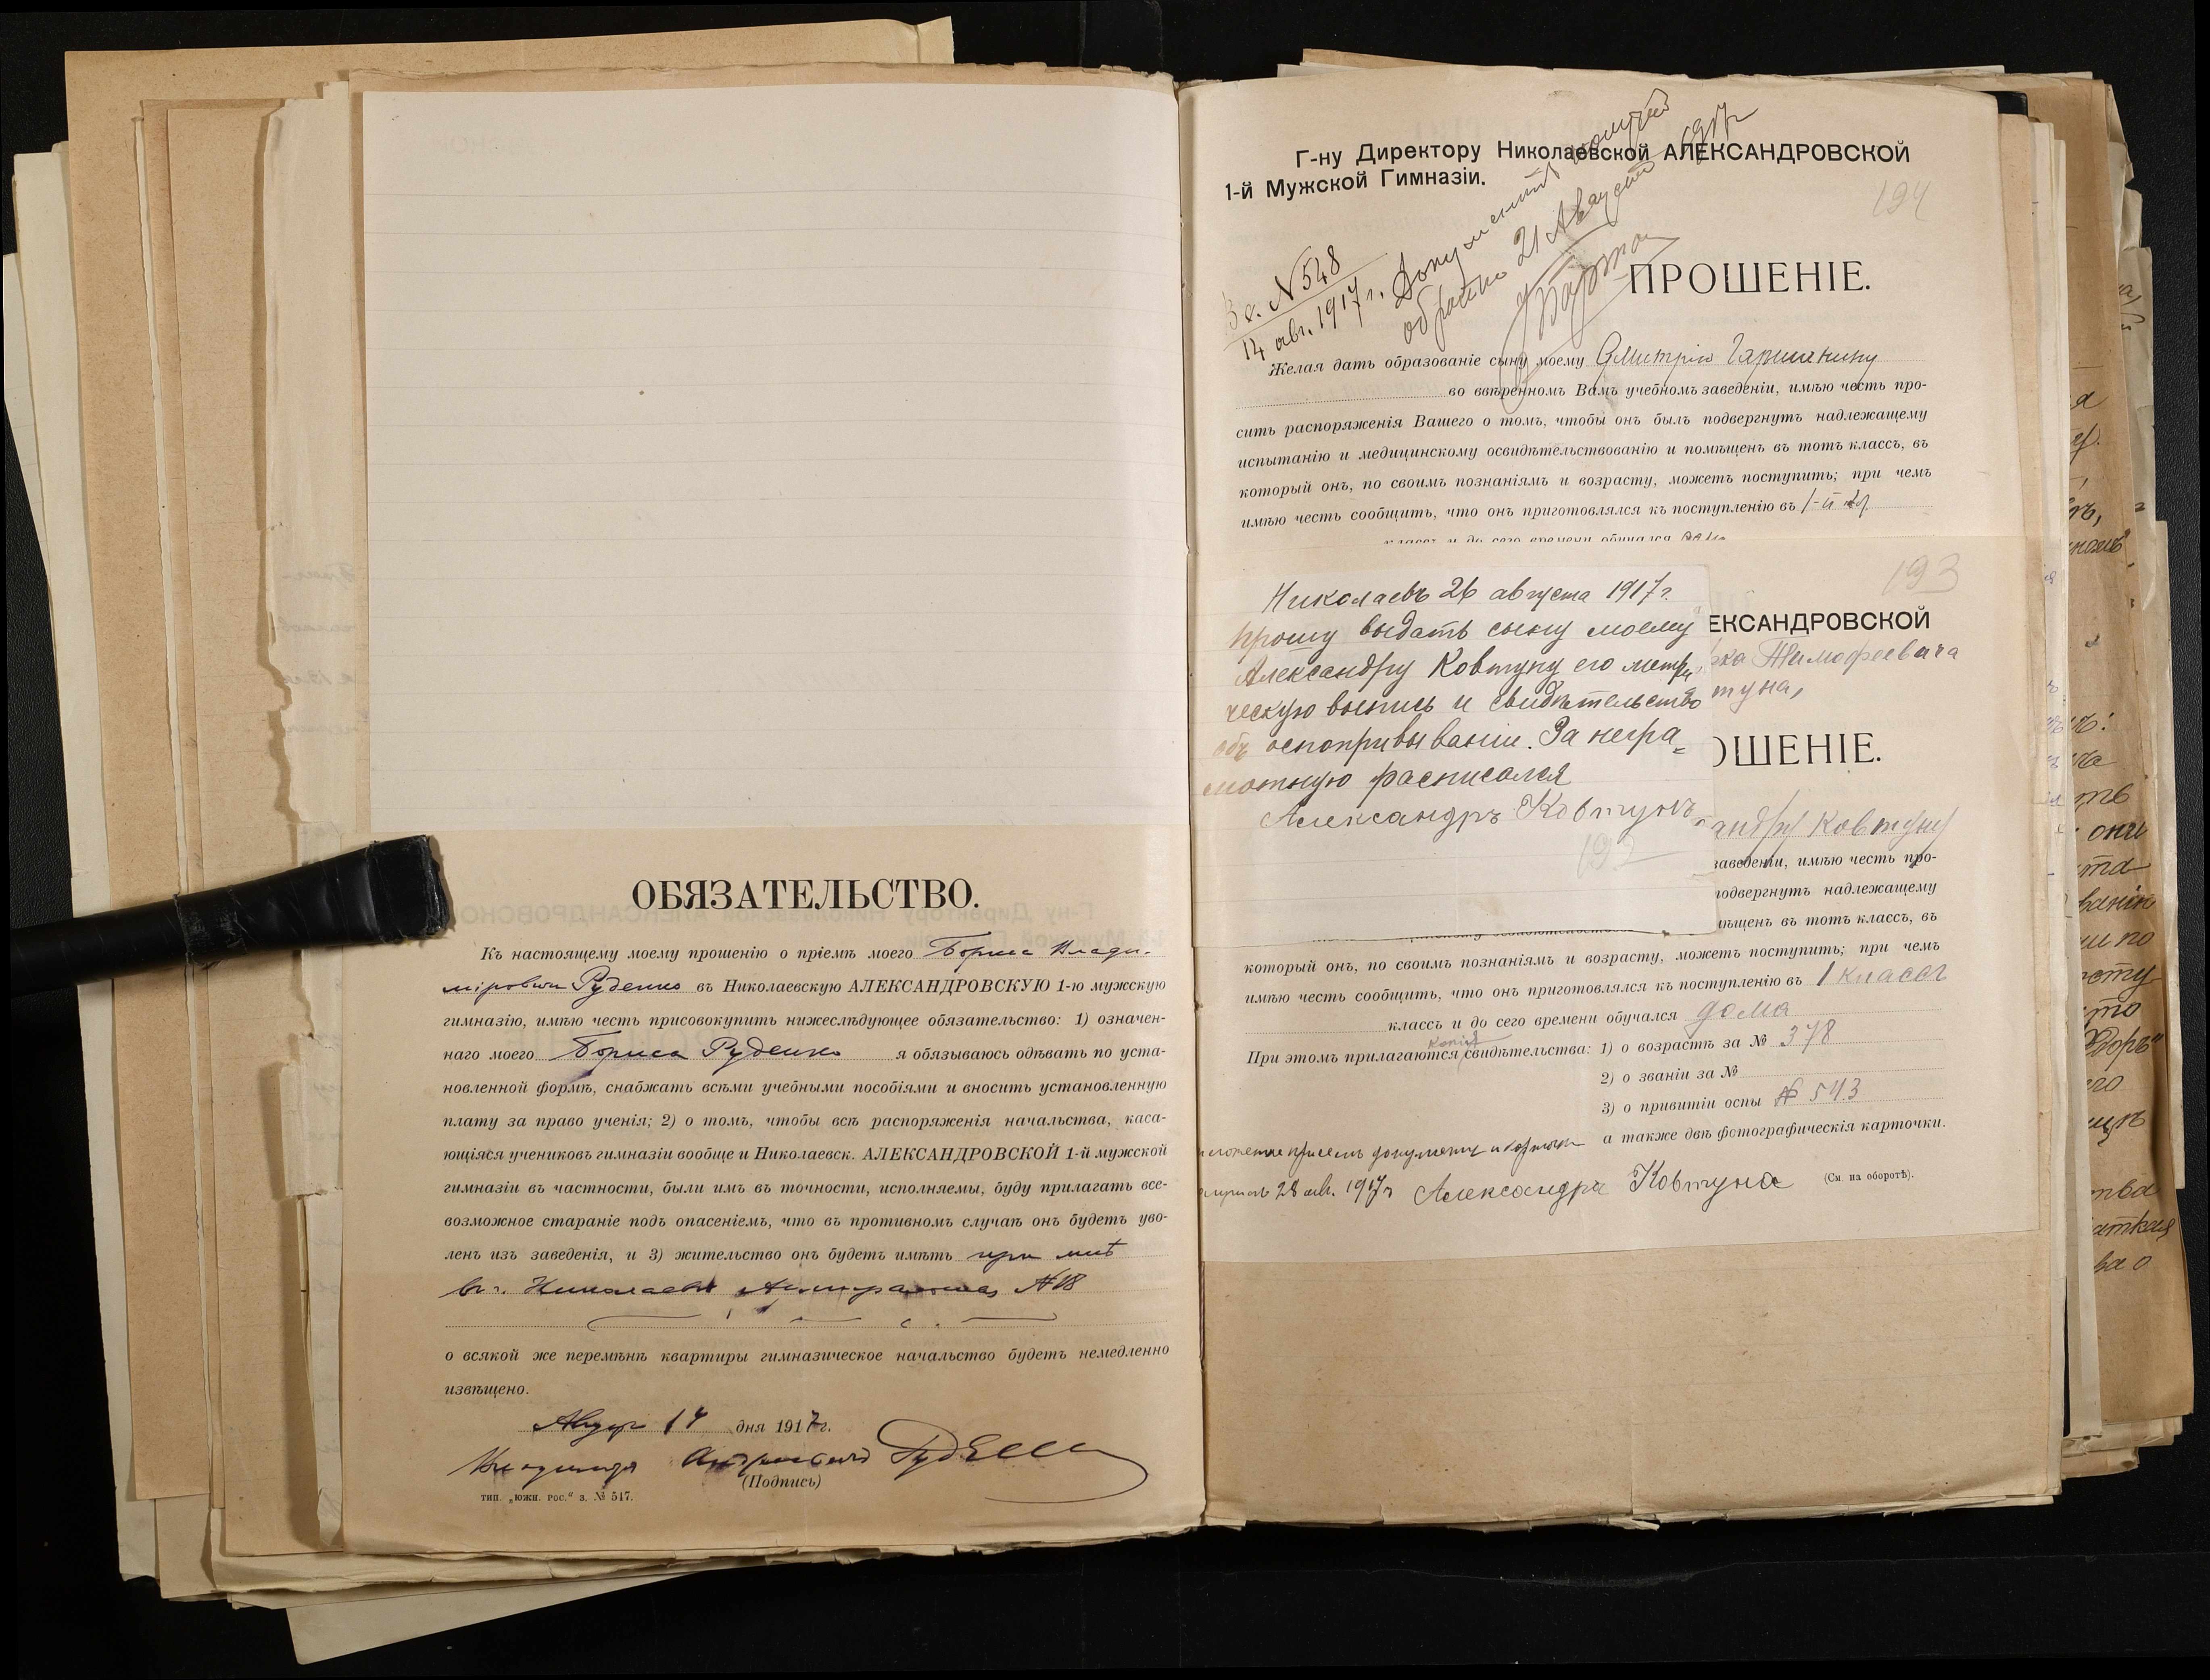 ОБЯЗАТЕЛЬСТВО.
Къ настоящему моему прошенію о пріемѣ моего Бориса Влади-
міровича Руденко въ Николаевскую АЛЕКСАНДРОВСКУЮ 1-ю мужскую
гимназію, имѣю честь присовокупить нижеслѣдующее обязательство: 1) означен-
наго моего Бориса Руденко я обязываюсь одѣвать по уста-
новленной формѣ, снабжать всѣми учебными пособіями и вносить установленную
плату за право ученія; 2) о томъ, чтобы всѣ распоряженія начальства, каса-
ющіяся учениковъ гимназіи вообще и Николаевск. АЛЕКСАНДРОВСКОЙ 1-й мужской
гимназіи въ частности, были имъ въ точности, исполняемы, буду прилагать все-
возможное стараніе подъ опасеніемъ, что въ противномъ случаѣ онъ будетъ уво-
ленъ изъ заведенія, и 3) жительство онъ будетъ имѣть при мнѣ
въ г. Николаевѣ №18
о всякой же перемѣнѣ квартиры гимназическое начальство будетъ немедленно
извѣщено.
14 дня 1917 г.
Владиміръ Андреевичъ
(Подпись)
тип. „южн. рос.“ з. № 517.
Г-ну Директору Николаевской АЛЕКСАНДРОВСКОЙ
1-й Мужской Гимназіи.
194
№548
14 авг. 1917 г.
Документы получилъ
обратно 21 Августа 1917 г.
ПРОШЕНІЕ.
Желая дать образованіе сыну моему Дмитрію
во ввѣренномъ Вамъ учебномъ заведеніи, имѣю честь про-
сить распоряженія Вашего о томъ, чтобы онъ былъ подвергнутъ надлежащему
испытанію и медицинскому освидѣтельствованію и помѣщенъ въ тотъ классъ, въ
который онъ, по своимъ познаніямъ и возрасту, можетъ поступить; при чемъ
имѣю честь сообщить, что онъ приготовлялся къ поступленію въ 1-й кл.
классъ и до сего времени обучался
193
Николаевъ 26 августа 1917 г.
Прошу выдать сыну моему
Александру Ковтуну его метри
ческую выпись и свидѣтельство
объ оспопрививаніи. За негра=
мотную расписался
Александръ Ковтунъ
192
ЕКСАНДРОВСКОЙ
ка Тимофеевича
туна,
ОШЕНІЕ.
андру Ковтуну
заведеніи, имѣю честь про-
подвергнутъ надлежащему
мѣщенъ въ тотъ классъ, въ
который онъ, по своимъ познаніямъ и возрасту, можетъ поступить; при чемъ
имѣю честь сообщить, что онъ приготовлялся къ поступленію въ 1 классъ
классъ и до сего времени обучался дома
При этомъ прилагаются копіи свидѣтельства: 1) о возрастѣ за № 378
2) о званіи за №
3) о привитіи оспы № 543
а также двѣ фотографическія карточки.
документы и карточки
28 авг. 1917 г. Александра Ковтуна
(См. на оборотѣ).